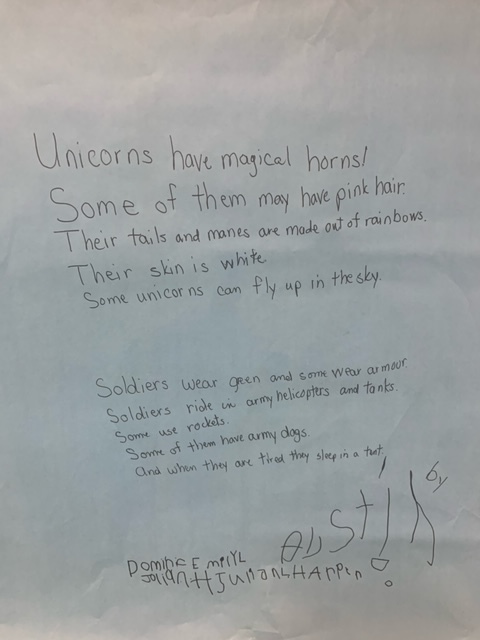 Unicorns have magical horns!
Some of them may have pink hair.
Their tails and manes are made out of rainbows.
Their skin is white.
Some unicorns can fly up in the sky.
Soldiers wear geen and some wear armour.
Soldiers ride in army helicopters and tanks.
Some use rockets.
Some of them have army dogs.
And when they are tired they sleep in a tent.
By